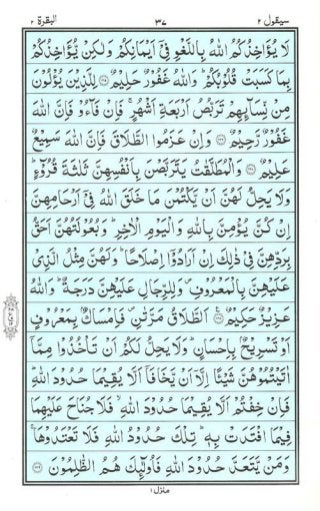 سيقول ٢ ٣٧ البقرة ٢
لَا يُؤَاخِذُكُمُ اللّٰهُ بِاللَّغْوِ فِيْٓ اَيْمَانِكُمْ وَلٰكِنْ يُّؤَاخِذُكُمْ
بِمَا كَسَبَتْ قُلُوْبُكُمْ ؕ وَاللّٰهُ غَفُوْرٌ حَلِيْمٌ ﴿٢٢٥﴾ لِلَّذِيْنَ يُؤْلُوْنَ
مِنْ نِّسَآىِٕهِمْ تَرَبُّصُ اَرْبَعَةِ اَشْهُرٍ ۚ فَاِنْ فَآءُوْ فَاِنَّ اللّٰهَ
غَفُوْرٌ رَّحِيْمٌ ﴿٢٢٦﴾ وَاِنْ عَزَمُوا الطَّلَاقَ فَاِنَّ اللّٰهَ سَمِيْعٌ
عَلِيْمٌ ﴿٢٢٧﴾ وَالْمُطَلَّقٰتُ يَتَرَبَّصْنَ بِاَنْفُسِهِنَّ ثَلٰثَةَ قُرُوْٓءٍ ؕ
وَلَا يَحِلُّ لَهُنَّ اَنْ يَّكْتُمْنَ مَا خَلَقَ اللّٰهُ فِيْٓ اَرْحَامِهِنَّ
اِنْ كُنَّ يُؤْمِنَّ بِاللّٰهِ وَالْيَوْمِ الْاٰخِرِ ؕ وَبُعُوْلَتُهُنَّ اَحَقُّ
بِرَدِّهِنَّ فِيْ ذٰلِكَ اِنْ اَرَادُوْٓا اِصْلَاحًا ؕ وَلَهُنَّ مِثْلُ الَّذِيْ
عَلَيْهِنَّ بِالْمَعْرُوْفِ ۪ وَلِلرِّجَالِ عَلَيْهِنَّ دَرَجَةٌ ؕ وَاللّٰهُ
عَزِيْزٌ حَكِيْمٌ ﴿٢٢٨﴾ اَلطَّلَاقُ مَرَّتٰنِ ۪ فَاِمْسَاكٌۢ بِمَعْرُوْفٍ
اَوْ تَسْرِيْحٌۢ بِاِحْسَانٍ ؕ وَلَا يَحِلُّ لَكُمْ اَنْ تَاْخُذُوْا مِمَّآ
اٰتَيْتُمُوْهُنَّ شَيْـًٔا اِلَّآ اَنْ يَّخَافَآ اَلَّا يُقِيْمَا حُدُوْدَ اللّٰهِ ؕ
فَاِنْ خِفْتُمْ اَلَّا يُقِيْمَا حُدُوْدَ اللّٰهِ ۙ فَلَا جُنَاحَ عَلَيْهِمَا
فِيْمَا افْتَدَتْ بِهٖ ؕ تِلْكَ حُدُوْدُ اللّٰهِ فَلَا تَعْتَدُوْهَا ۚ
وَمَنْ يَّتَعَدَّ حُدُوْدَ اللّٰهِ فَاُولٰٓىِٕكَ هُمُ الظّٰلِمُوْنَ ﴿٢٢٩﴾
منزل ١